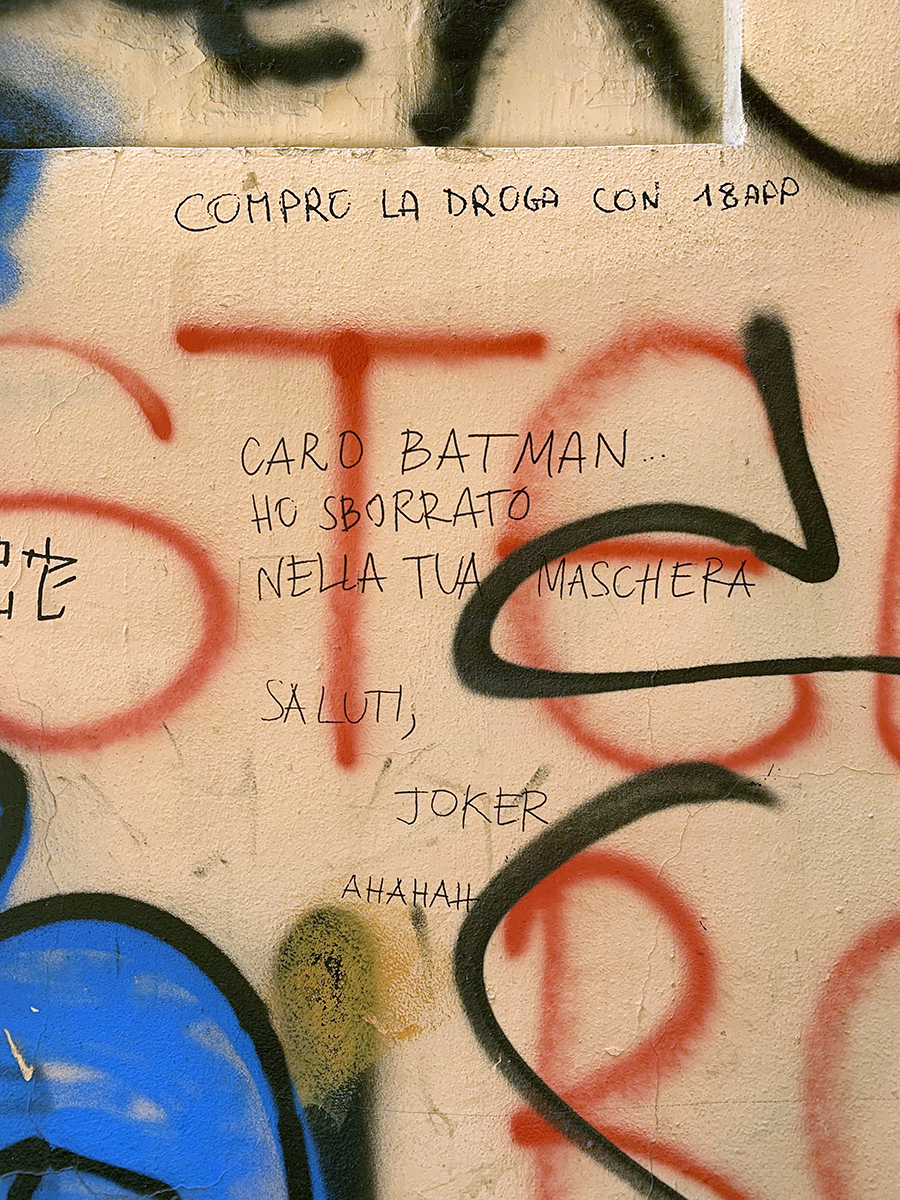 COMPRO LA DROGA CON 18APP
CARO BATMAN...
HO SBORRATO
NELLA TUA MASCHERA
SALUTI,
JOKER
AHAHAH